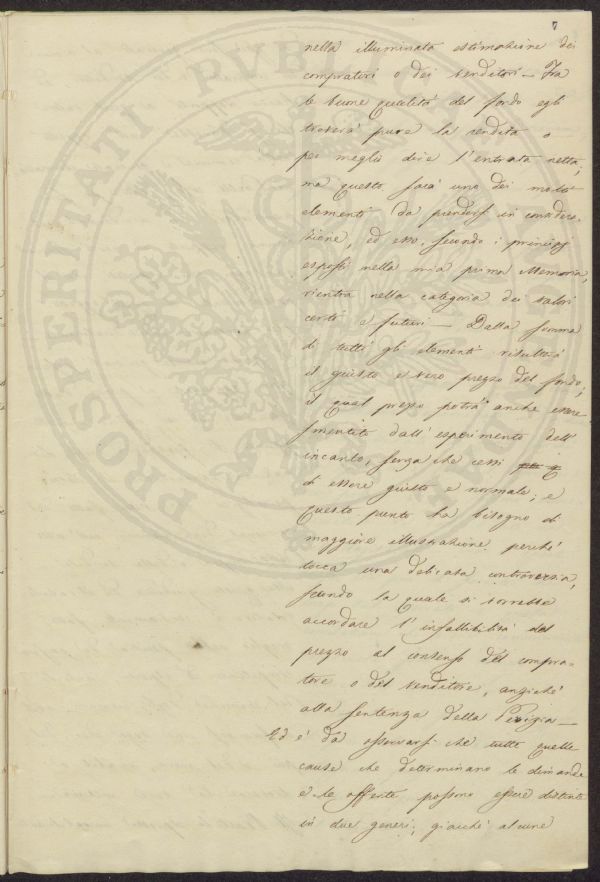 7
nella illuminata estimazione dei
compratori o dei venditori — Fra
le buone qualità del fondo egli
troverà pure la rendita o
per meglio dire l'entrata netta,
ma questo sarà uno dei molti
elementi da prendersi in considera-
zione, ed esso, secondo i principj
esposti nella mia prima Memoria,
rientra nella categoria dei valori
certi e futuri — Dalla somma
di tutti gli elementi risulterà
il giusto e vero prezzo del fondo;
il qual prezzo potrà anche essere
smentito dall'esperimento dell'
incanto, senza che cessi
di essere giusto e normale; e
questo punto ha bisogno di
maggiore illustrazione perché
tocca una delicata controversia,
secondo la quale si vorrebbe
accordare l'infallibilità del
prezzo al consenso del compra-
tore o del venditore, anziché
alla sentenza della Perizia —
Ed è da osservarsi che tutte quelle
cause che determinano le dimande
e le offerte possono essere distinte
in due generi; giacché alcune
PROSPERITATI PVBLICAE AVG